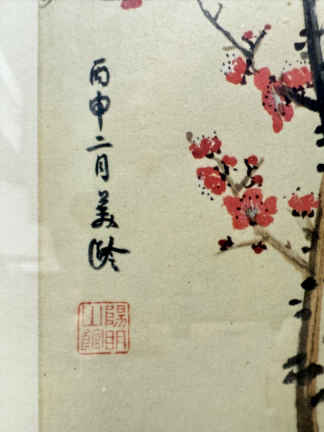 丙申二月美齡
陽明
山館